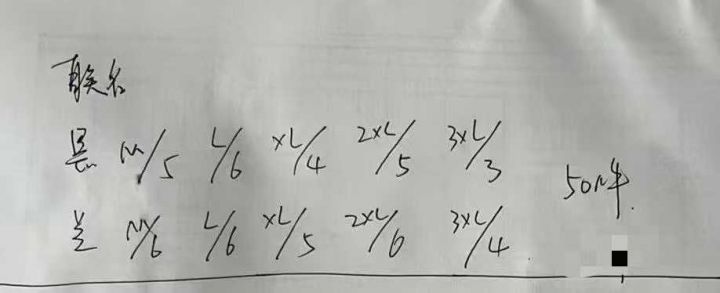 联名
黑 M/5 L/6 XL/4 2XL/5 3XL/3
50件.
兰 M/6 L/6 XL/5 2XL/6 3XL/4